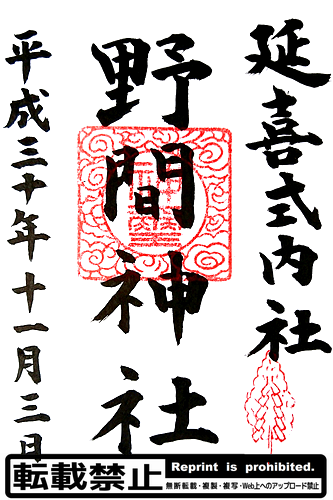 延喜式内社
野間神社
平成三十年十一月三日
転載禁止
Reprint is prohibited.
無断転載・複製・複写・Web上へのアップロード禁止